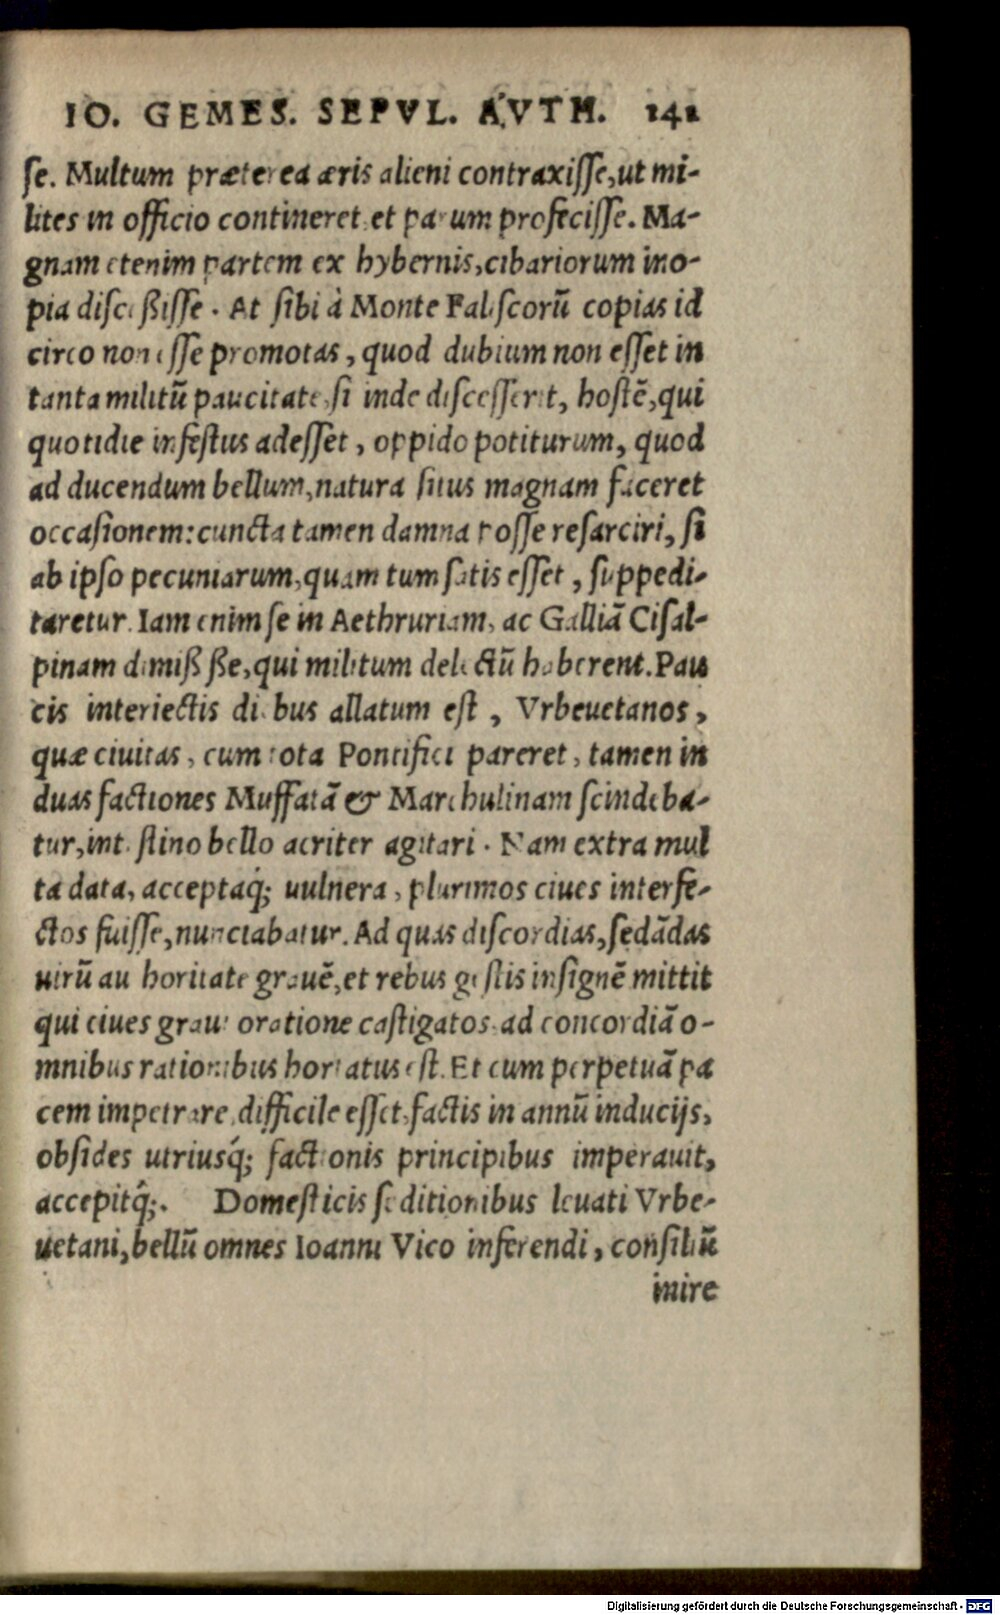 IO. GEMES. SEPVL. AVTH. 141
se. Multum præterea æris alieni contraxisse, ut mi-
lites in officio contineret et parum profecisse. Ma-
gnam etenim partem ex hybernis, cibariorum ino-
pia discessisse. At sibi à Monte Faliscorũ copias id
circo non esse promotas, quod dubium non esset in
tanta militũ paucitate, si inde discesserit, hostẽ, qui
quotidie infestus adesset, oppido potiturum, quod
ad ducendum bellum, natura situs magnam faceret
occasionem: cuncta tamen damna posse resarciri, si
ab ipso pecuniarum, quantum satis esset, suppedi-
taretur. Iam enim se in Aethruriam, ac Galliã Cisal-
pinam dimisisse, qui militum delectũ haberent. Pau
cis interiectis diebus allatum est, Vrbeuetanos,
quæ ciuitas, cum tota Pontifici pareret, tamen in
duas factiones Muffatã & Marchulinam scindeba-
tur, intestino bello acriter agitari. Nam extra mul
ta data, acceptaq́; uulnera, plurimos ciues interfe-
ctos fuisse, nunciabatur. Ad quas discordias, sedãdas
uirũ authoritate grauẽ, et rebus gestis insignẽ mittit
qui ciues graui oratione castigatos ad concordiã o-
mnibus rationibus hortatus est. Et cum perpetuã pa
cem impetrare difficile esset, factis in annũ inducijs,
obsides utriusq́; factionis principibus imperauit,
accepitq́;. Domesticis seditionibus leuati Vrbe-
uetani, bellũ omnes Ioanni Vico inferendi, consiliũ
inire
Digitalisierung gefördert durch die Deutsche Forschungsgemeinschaft - DFG